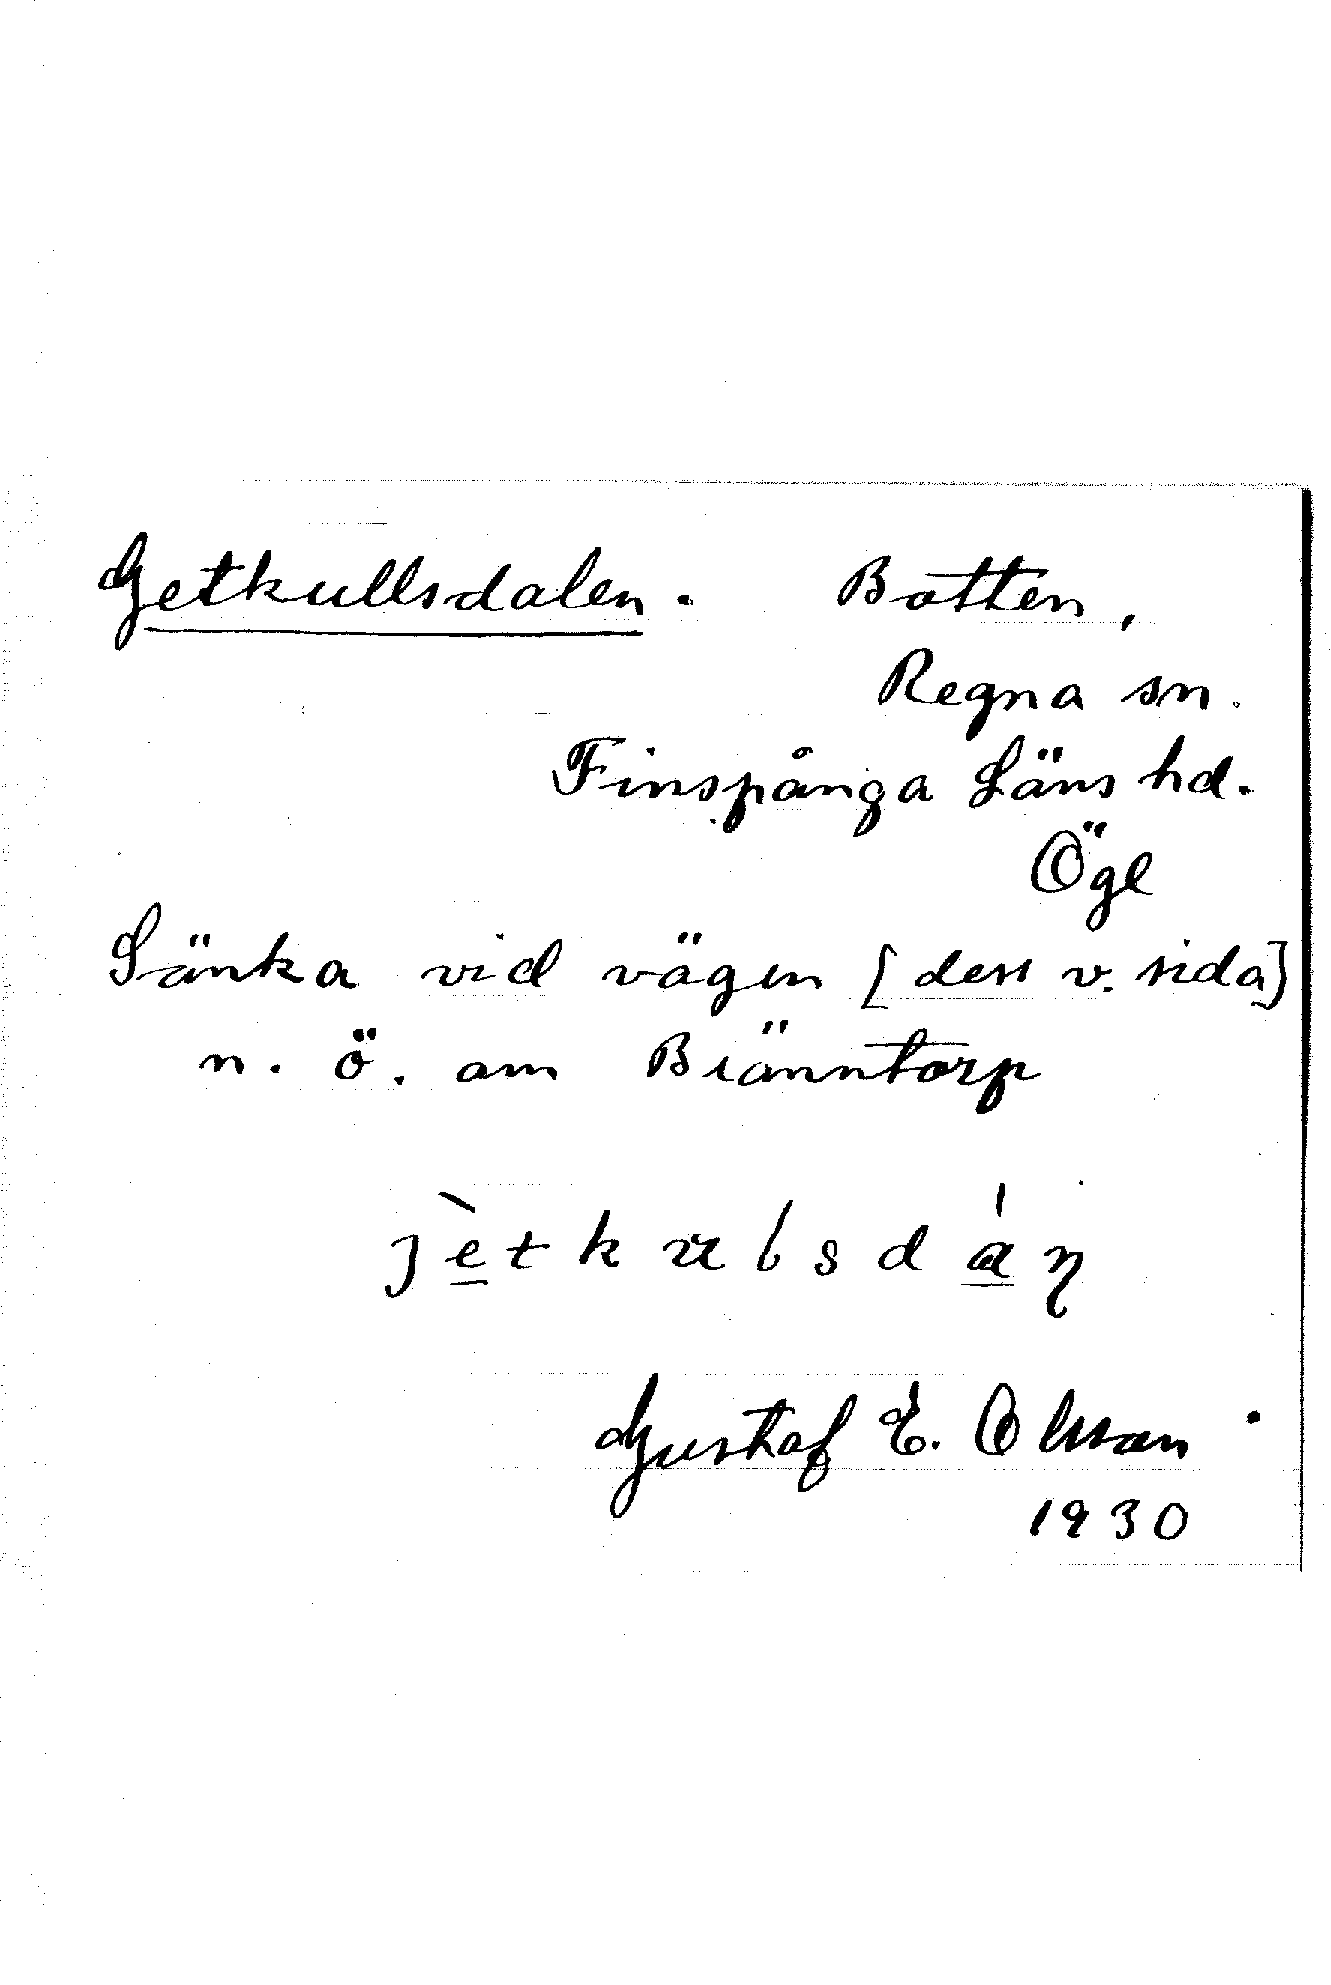 Getkullsdalen. Botten,
Regna sn.
Finspånga Läns hd.
Ögl
Sänka vid vägen [dess v. sida]
n. ö. om Bränntorp
jètkulsdán
Gustaf E. Olsson
1930